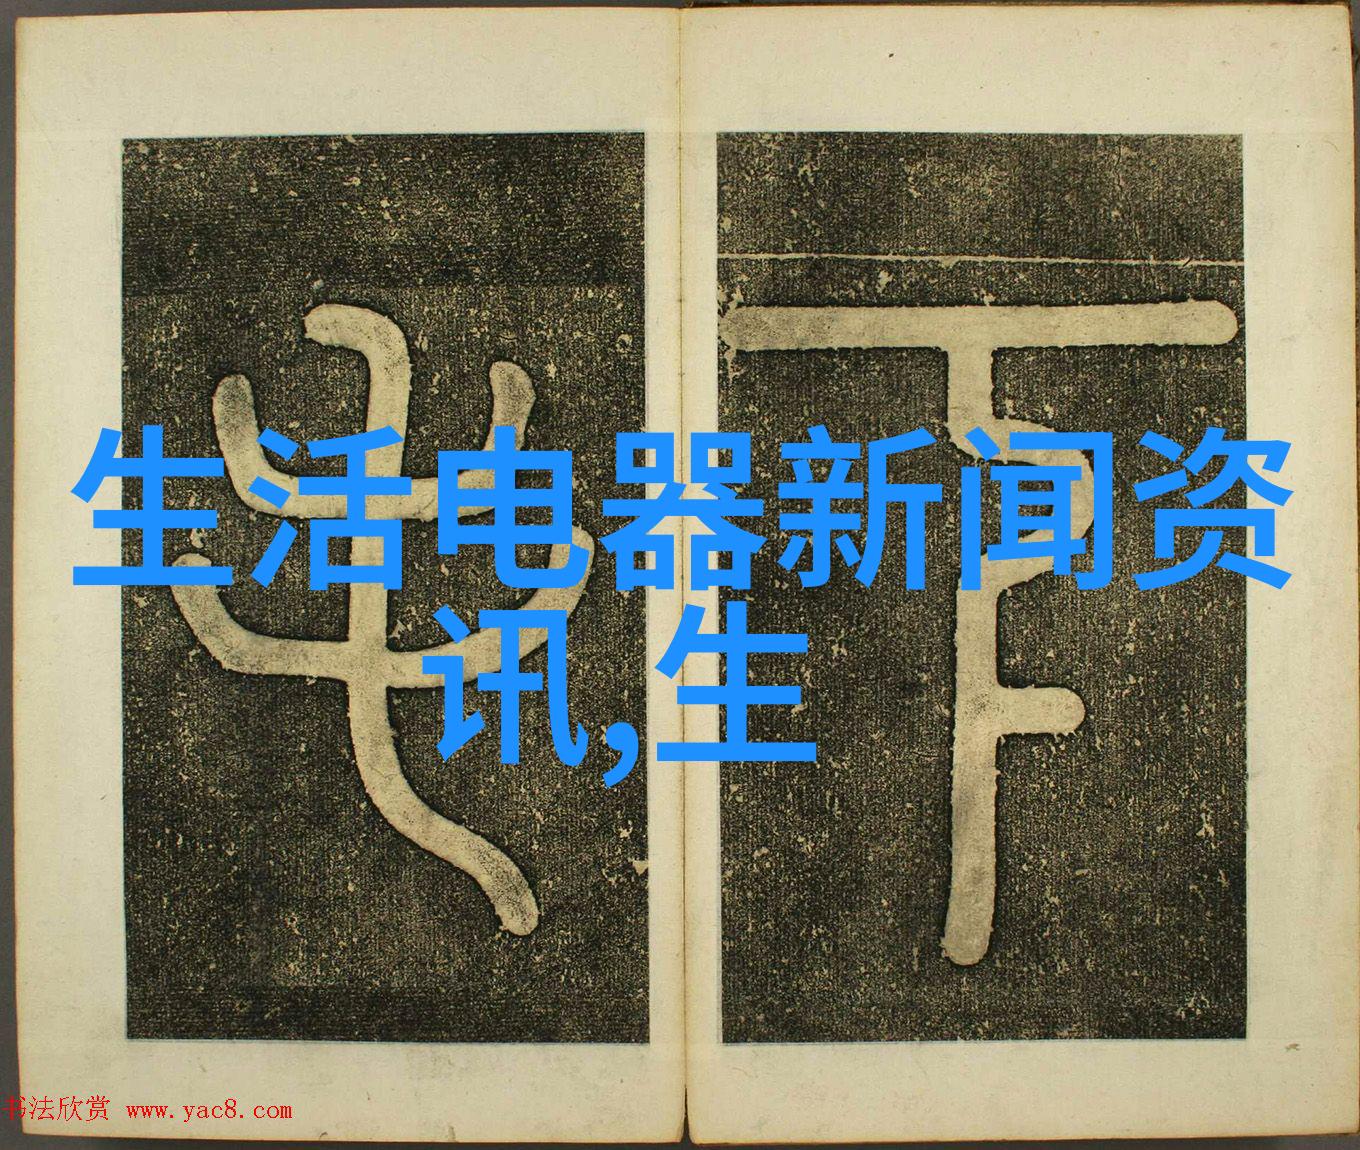 生活电器新闻资
讯,生
书法欣赏 www.yac8.com